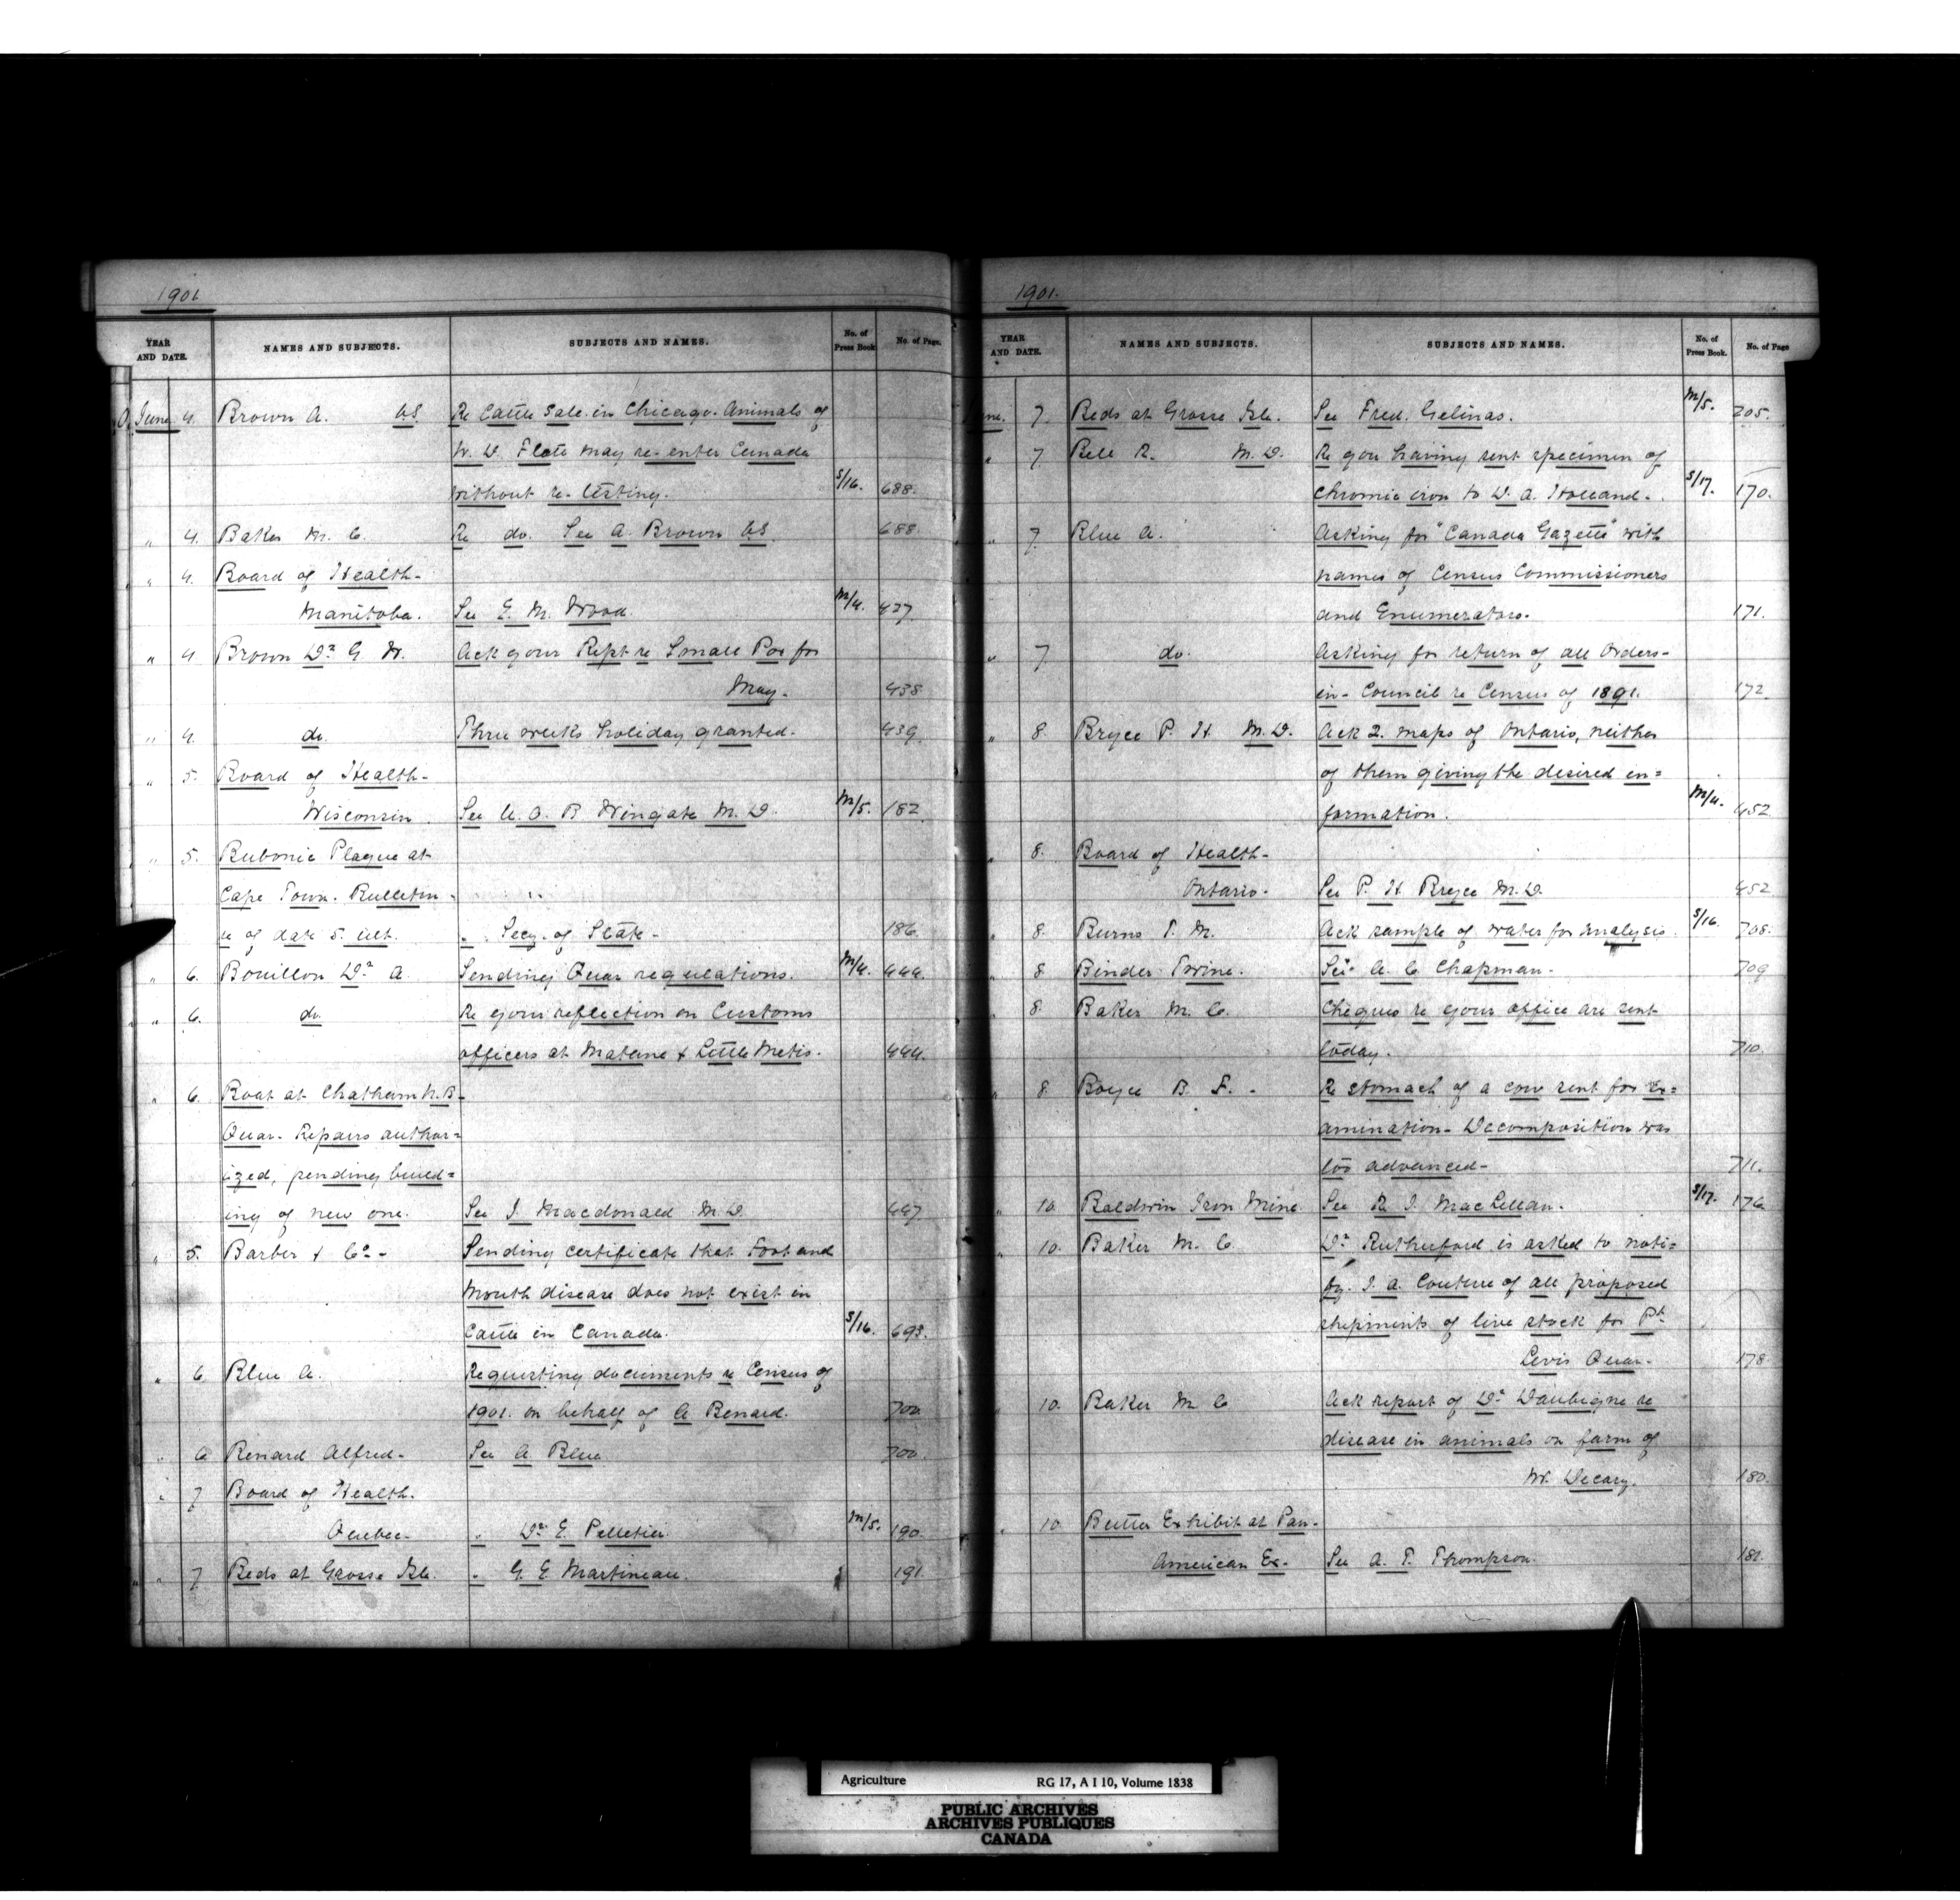 1901
YEAR AND DATE. NAMES AND SUBJECTS. SUBJECTS AND NAMES. No. of Press Book. No. of Page.
June 4. Brown A. VS. Re Cattle Sale in Chicago. Animals of
W. D. Flatt may re-enter Canada
without re-testing. S/16. 688.
" 4. Baker M. C. Re do. See A. Brown VS 688.
" 4. Board of Health-
Manitoba. See E. M. Wood. M/4. 437
" 4. Brown Dr G W. Ack your Rept re Small Pox for
May. 438
" 4. do. Three weeks holiday granted. 439.
" 5. Board of Health-
Wisconsin. See U. O. B Wingate M. D. M/5. 182
" 5. Bubonic Plague at
Cape Town. Bulletin
re of date 5 ult. " Secy. of State- 186
" 6. Bouillon Dr A. Sending Quar regulations. M/4. 444.
" 6. do Re your reflection on Customs
officers at Matane & Little Metis. 444.
" 6. Boat at Chatham N. B-
Quar. Repairs author=
ized, pending build=
ing of new one. See J. Macdonald M. D. 447
" 5. Barber & Co- Sending certificate that Foot and
Mouth disease does not exist in
Cattle in Canada. S/16. 693.
" 6 Blue A. Requesting documents re Census of
1901. on behalf of A Benard. 700
" 6 Benard Alfred- See A Blue 700.
" 7 Board of Health.
Quebec. " Dr E. Pelletier. M/5. 190.
" 7. Beds at Grosse Isle. " G. E. Martineau. 191.
1901.
YEAR AND DATE. NAMES AND SUBJECTS. SUBJECTS AND NAMES. No. of Press Book. No. of Page
June. 7. Beds at Grosse Isle. See Fred. Gelinas. M/5. 205.
" 7. Bell R. M. D. Re you having sent specimen of
Chromic iron to D. A. Holland. S/17. 170.
" 7. Blue A. Asking for "Canada Gazette" with
names of Census Commissioners
and Enumerators. 171.
" 7. do. Asking for return of all Orders-
in-Council re Census of 1891. 172.
" 8. Bryce P. H. M. D. Ack 2. maps of Ontario, neither
of them giving the desired in=
formation. M/4. 452
" 8. Board of Health-
Ontario. See P. H Bryce M. D. 452
" 8. Burns T. M. Ack sample of water for analysis. S/16. 708.
" 8 Binder Twine. See A. C. Chapman. 709
" 8. Baker M. C. Cheques re your office are sent
today. 710.
" 8 Boyce B. F. - Re stomach of a cow sent for Ex=
amination- Decomposition was
too advanced- 711.
" 10. Baldwin Iron Mine See R J. MacLellan. S/17. 176
" 10. Baker M. C. Dr Rutherford is asked to noti=
fy. J. A. Couture of all proposed
shipments of live stock for Pt.
Levis Quar. 178.
" 10. Baker M. C Ack report of Dr Daubigne re
disease in animals on farm of
W. Decary. 180.
" 10 Butter Exhibit at Pan-
American Ex- See A. T. Thompson.
Agriculture RG 17, A I 10, Volume 1838
PUBLIC ARCHIVES
ARCHIVES PUBLIQUES
CANADA